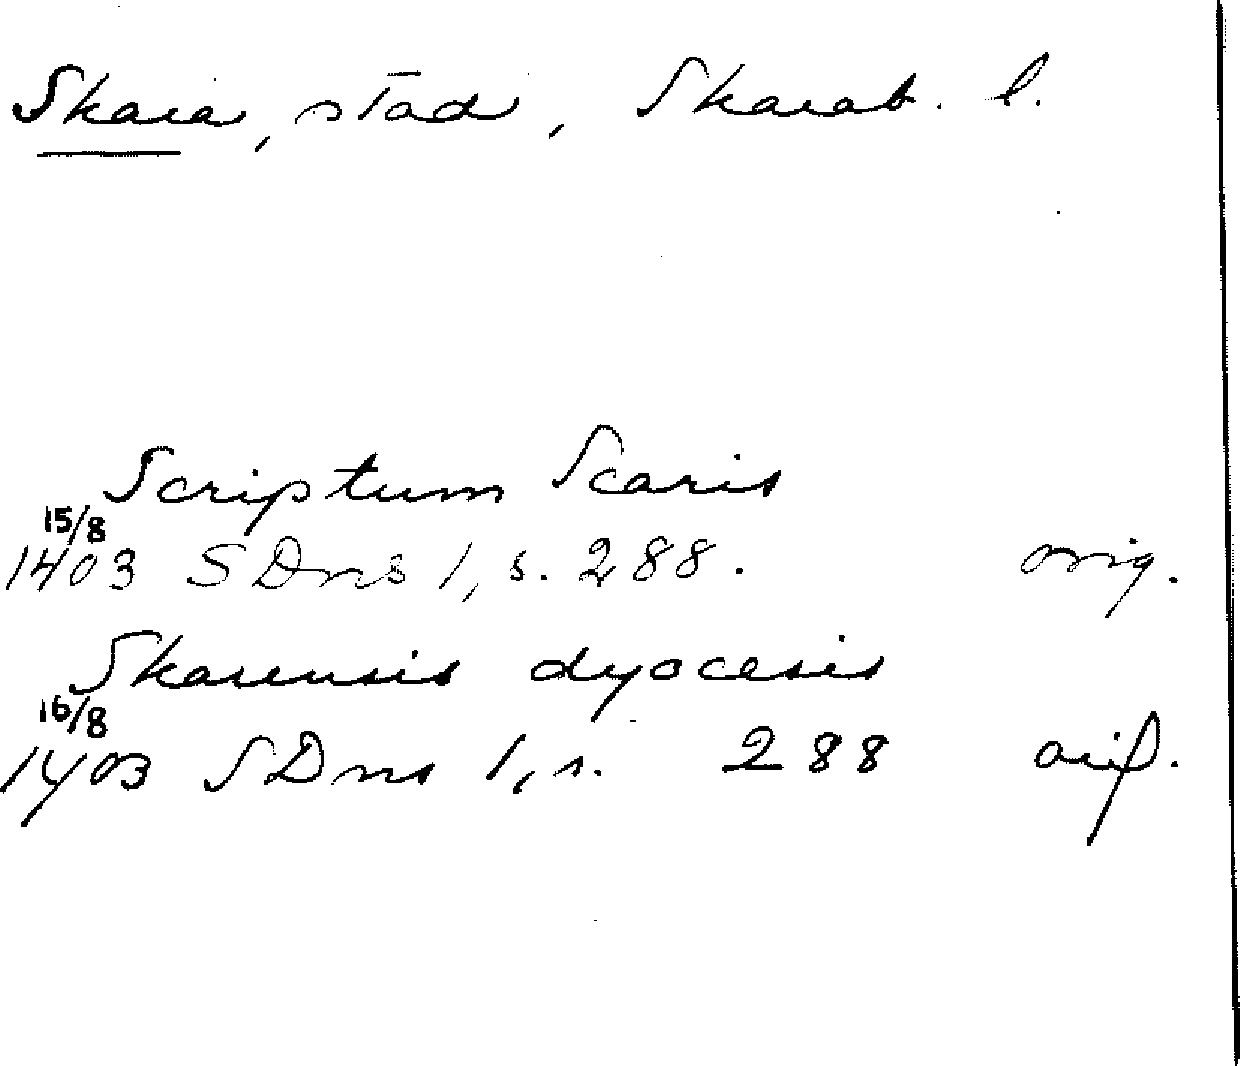 Skara, stad, Skarab. l.
Scriptum Scaris
15/8
1403 SDns 1, s. 288. orig.
Skarensis dyocesis
16/8
1403 SDns 1, s. 288 orig.